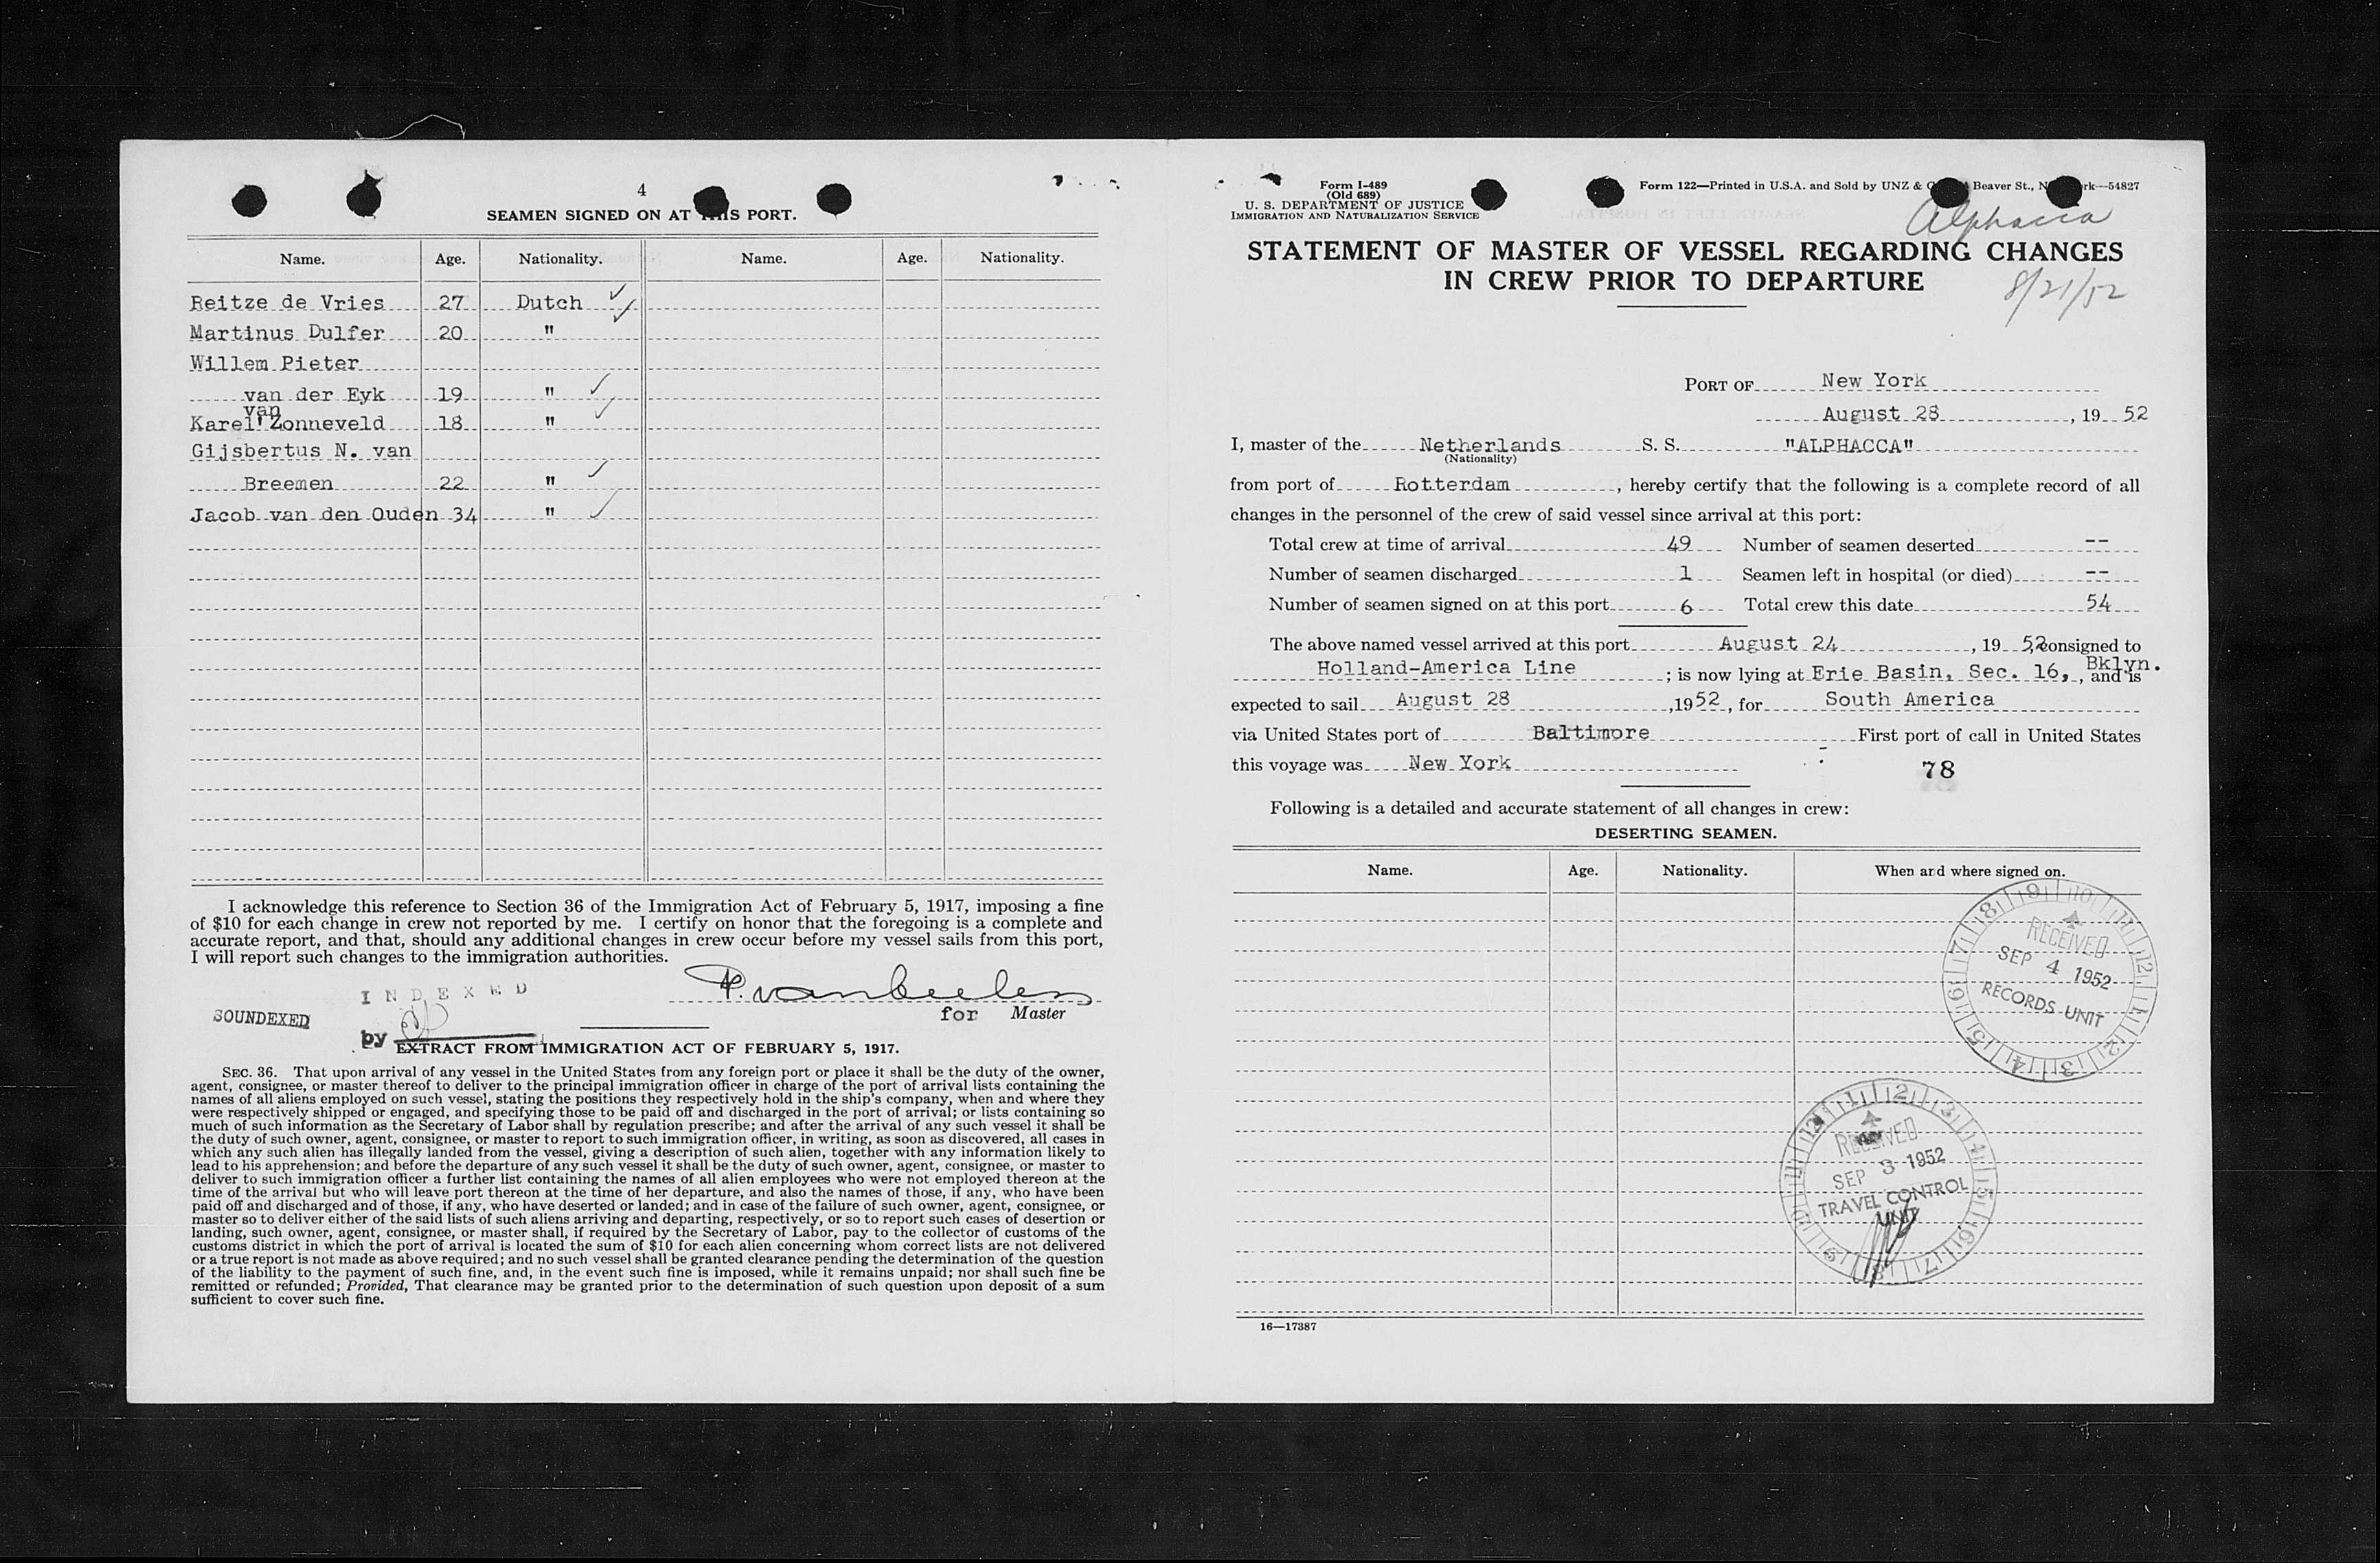 4
SEAMEN SIGNED ON AT THIS PORT.
Name. Age. Nationality. Name. Age. Nationality.
Reitze de Vries 27 Dutch ✓
Martinus Dulfer 20 " ✓
Willem Pieter
van der Eyk 19 " ✓
van
Karel' Zonneveld 18 " ✓
Gijsbertus N. van
Breemen 22 " ✓
Jacob van den Ouden 34 " ✓
I acknowledge this reference to Section 36 of the Immigration Act of February 5, 1917, imposing a fine
of $10 for each change in crew not reported by me. I certify on honor that the foregoing is a complete and
accurate report, and that, should any additional changes in crew occur before my vessel sails from this port,
I will report such changes to the immigration authorities.
INDEXED
SOUNDEXED
for Master
by
EXTRACT FROM IMMIGRATION ACT OF FEBRUARY 5, 1917.
SEC. 36. That upon arrival of any vessel in the United States from any foreign port or place it shall be the duty of the owner,
agent, consignee, or master thereof to deliver to the principal immigration officer in charge of the port of arrival lists containing the
names of all aliens employed on such vessel, stating the positions they respectively hold in the ship's company, when and where they
were respectively shipped or engaged, and specifying those to be paid off and discharged in the port of arrival; or lists containing so
much of such information as the Secretary of Labor shall by regulation prescribe; and after the arrival of any such vessel it shall be
the duty of such owner, agent, consignee, or master to report to such immigration officer, in writing, as soon as discovered, all cases in
which any such alien has illegally landed from the vessel, giving a description of such alien, together with any information likely to
lead to his apprehension; and before the departure of any such vessel it shall be the duty of such owner, agent, consignee, or master to
deliver to such immigration officer a further list containing the names of all alien employees who were not employed thereon at the
time of the arrival but who will leave port thereon at the time of her departure, and also the names of those, if any, who have been
paid off and discharged and of those, if any, who have deserted or landed; and in case of the failure of such owner, agent, consignee, or
master so to deliver either of the said lists of such aliens arriving and departing, respectively, or so to report such cases of desertion or
landing, such owner, agent, consignee, or master shall, if required by the Secretary of Labor, pay to the collector of customs of the
customs district in which the port of arrival is located the sum of $10 for each alien concerning whom correct lists are not delivered
or a true report is not made as above required; and no such vessel shall be granted clearance pending the determination of the question
of the liability to the payment of such fine, and, in the event such fine is imposed, while it remains unpaid; nor shall such fine be
remitted or refunded; Provided, That clearance may be granted prior to the determination of such question upon deposit of a sum
sufficient to cover such fine.
Form I-489
(Old 689)
U. S. DEPARTMENT OF JUSTICE
IMMIGRATION AND NATURALIZATION SERVICE
Form 122—Printed in U.S.A. and Sold by UNZ & Beaver St., rk—54827
Alphacca
STATEMENT OF MASTER OF VESSEL REGARDING CHANGES
IN CREW PRIOR TO DEPARTURE
8/21/52
PORT OF New York
August 28, 19 52
I, master of the Netherlands S. S. "ALPHACCA"
(Nationality)
from port of Rotterdam, hereby certify that the following is a complete record of all
changes in the personnel of the crew of said vessel since arrival at this port:
Total crew at time of arrival 49 Number of seamen deserted --
Number of seamen discharged 1 Seamen left in hospital (or died) --
Number of seamen signed on at this port 6 Total crew this date 54
The above named vessel arrived at this port August 24, 19 52, consigned to
Holland-America Line; is now lying at Erie Basin, Sec. 16, Bklyn., and is
expected to sail August 28, 1952, for South America
via United States port of Baltimore First port of call in United States
this voyage was New York
78
Following is a detailed and accurate statement of all changes in crew:
DESERTING SEAMEN.
Name. Age. Nationality. When and where signed on.
RECEIVED
SEP 4 1952
RECORDS UNIT
RECEIVED
SEP 3 1952
TRAVEL CONTROL
UNIT
16—17387